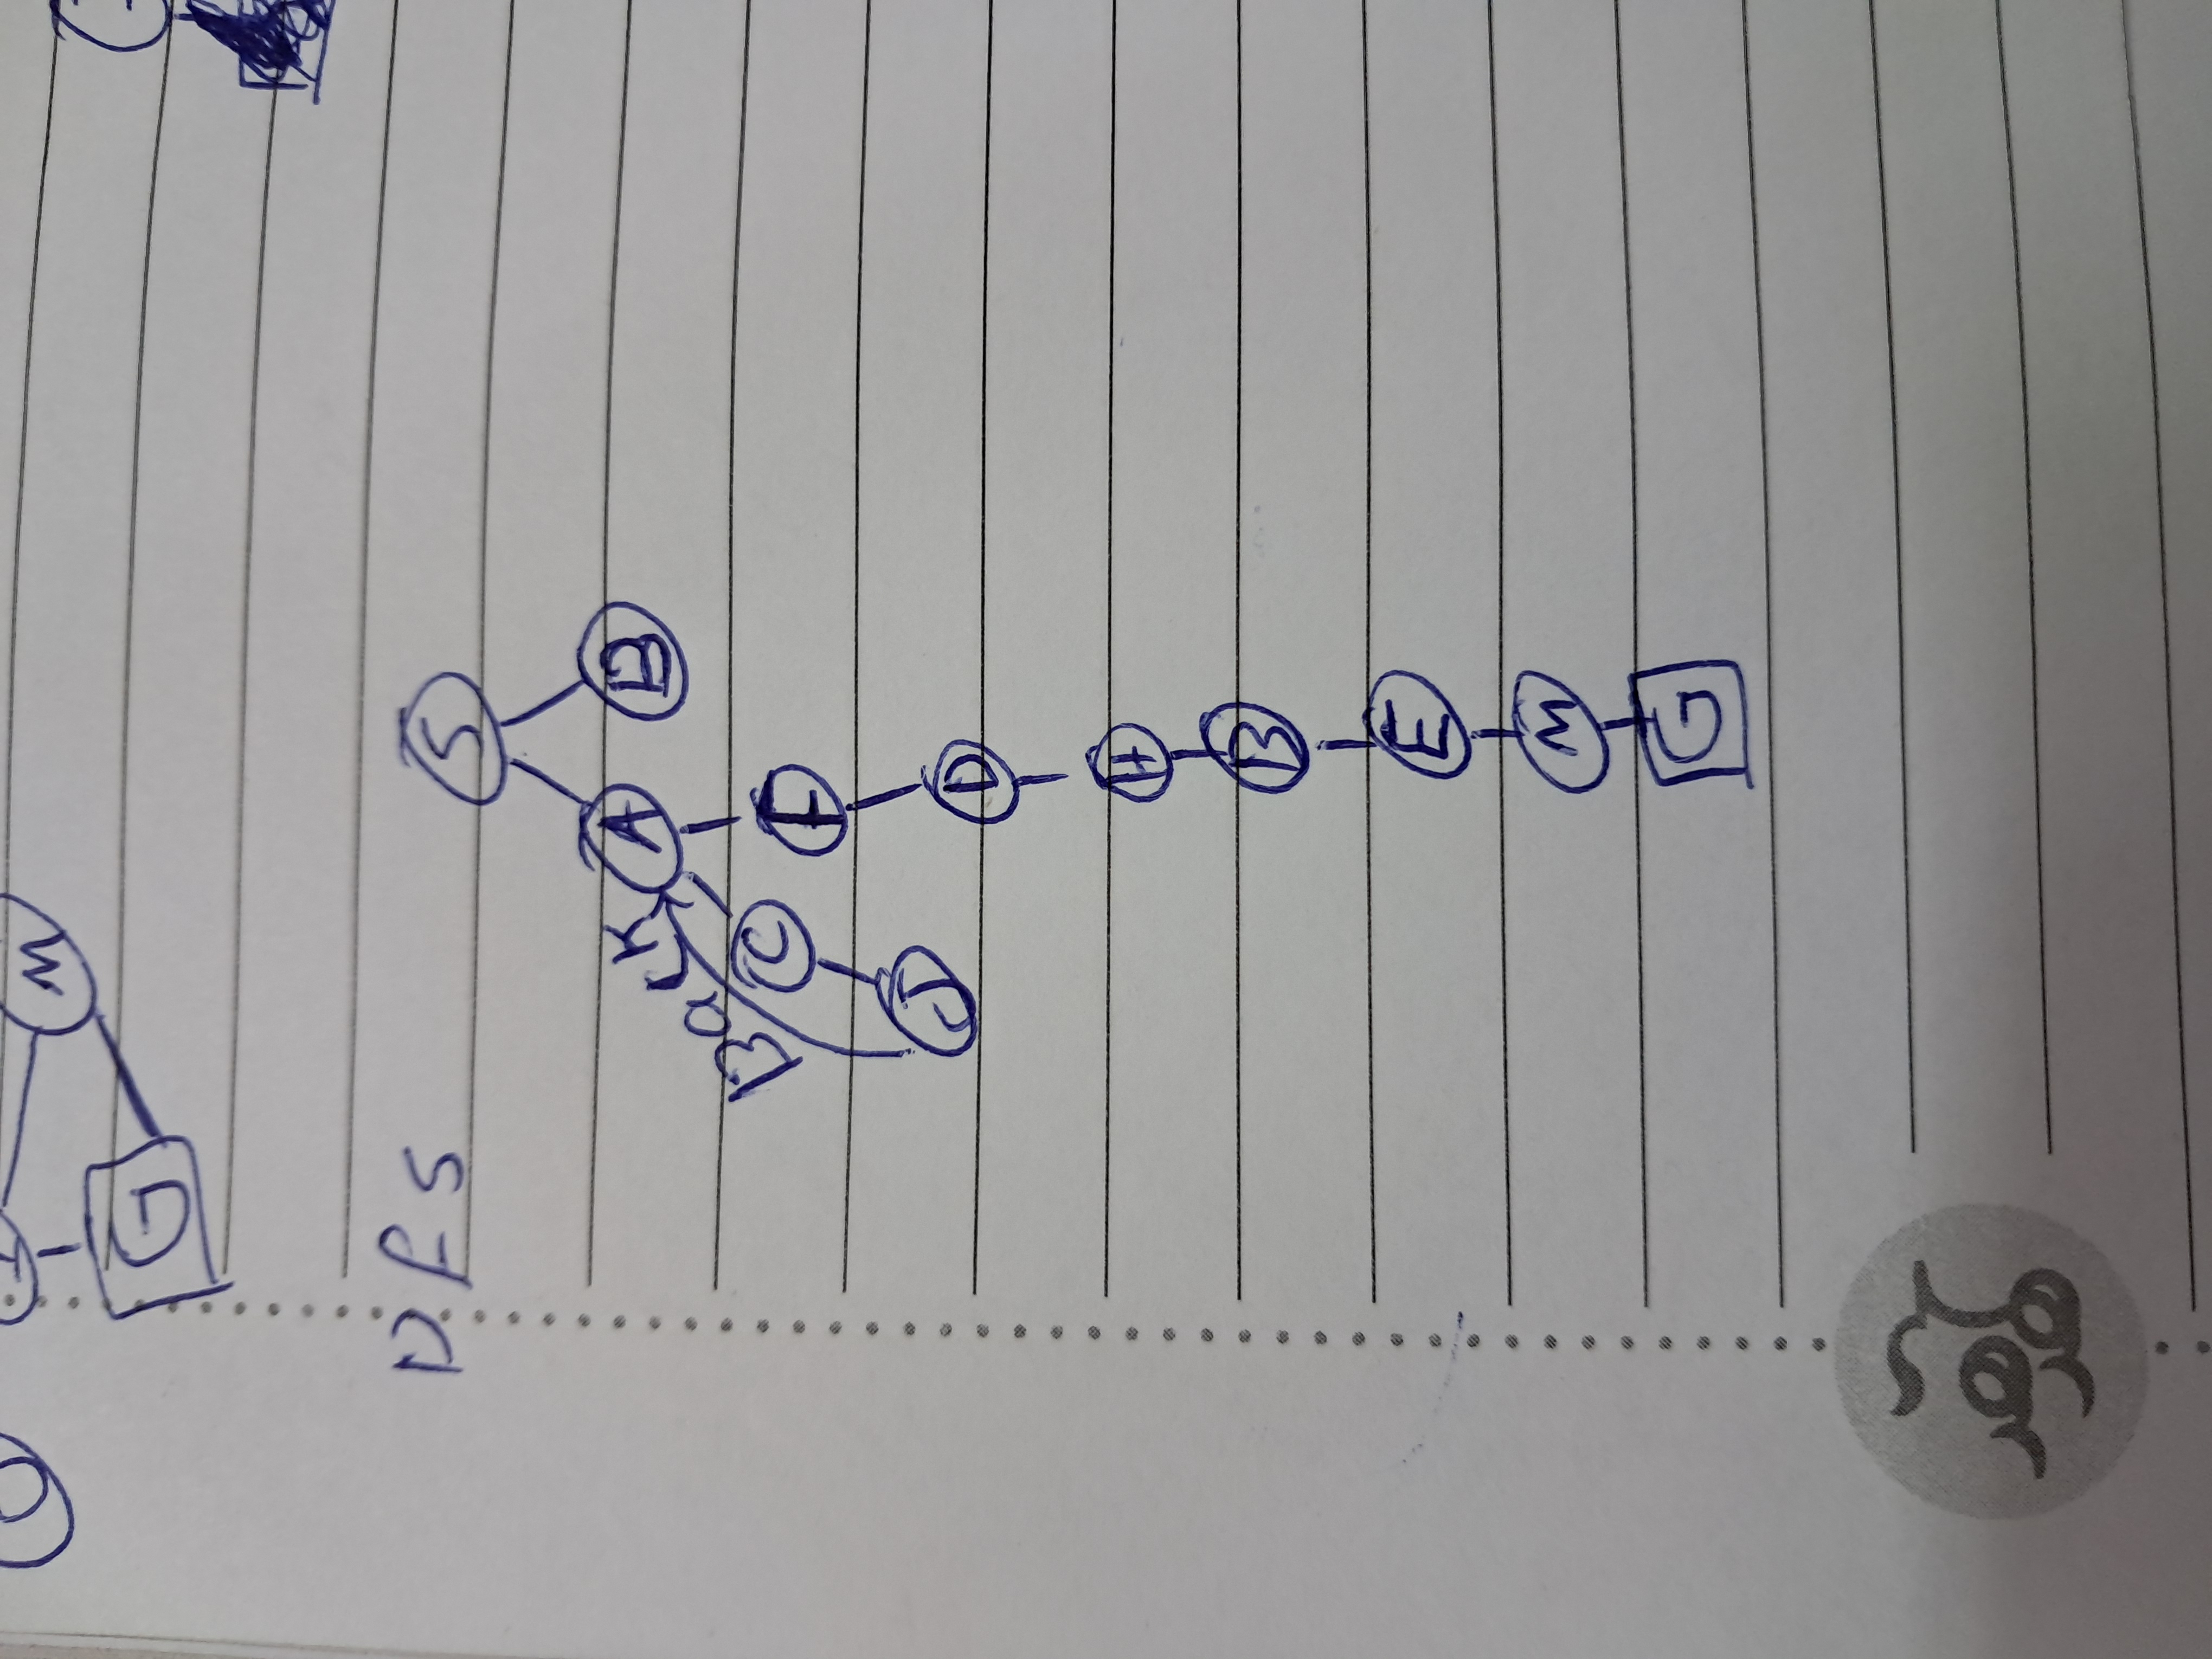 M
G
DFS
S
A B
Back
C F
J
D
H
B
E
M
G